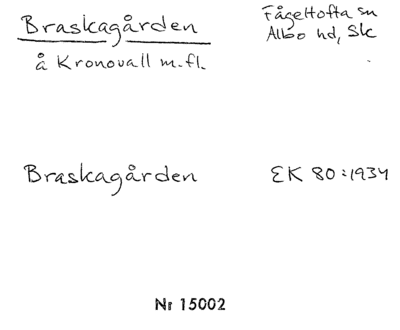 Braskagården
Fågeltofta sn
Albo hd, Sk
å Kronovall m.fl.
Braskagården
EK 80:1934
Nr 15002